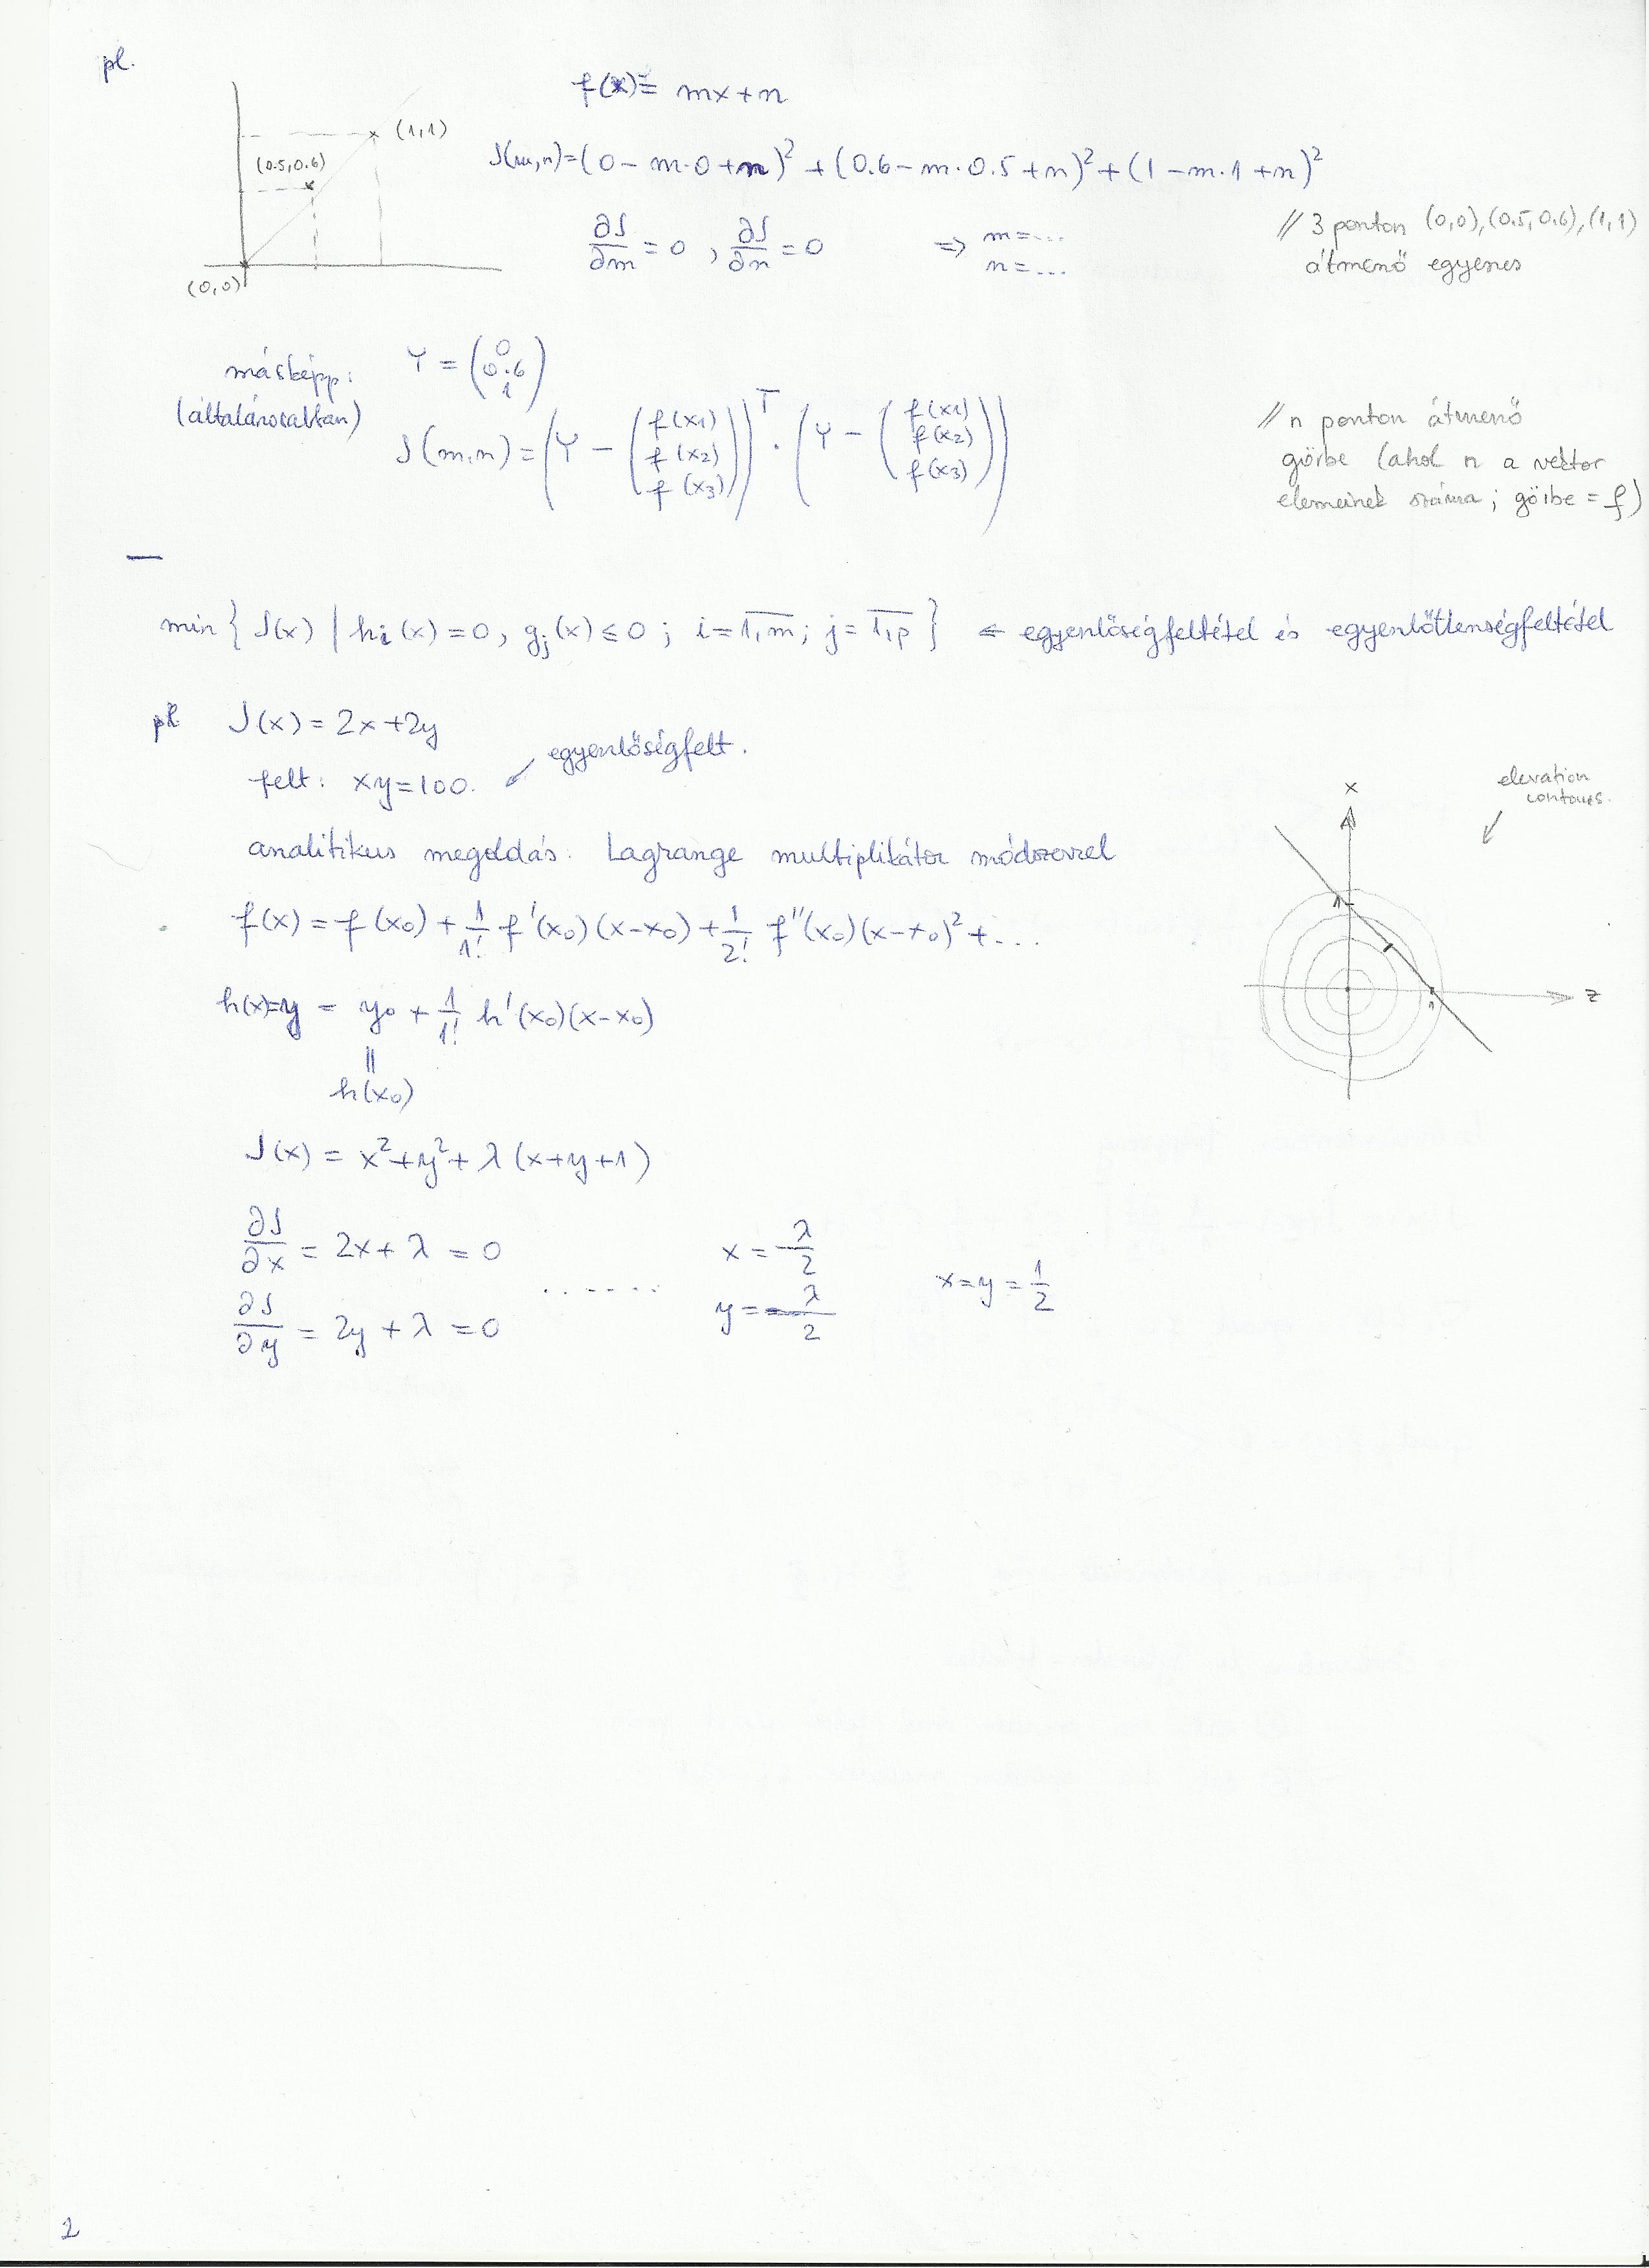 pl.
f(x) = mx+n
(1,1)
(0.5,0.6)
(0,0)
J(m,n)=(0-m·0+n)² + (0.6-m·0.5+n)² + (1-m·1+n)²
∂J/∂m = 0 , ∂J/∂n = 0 => m=... n=...
// 3 ponton (0,0),(0.5,0.6),(1,1)
átmenő egyenes
másképp:
(általánosabban)
Y = (0 0.6 1)
J(m,n) = (Y - (f(x1) f(x2) f(x3)))ᵀ · (Y - (f(x1) f(x2) f(x3)))
// n ponton átmenő
görbe (ahol n a vektor
elemeinek száma ; görbe = f)
min { J(x) | hi(x)=0, gj(x) ≤ 0 ; i=1,m; j=1,p } ← egyenlőségfeltétel és egyenlőtlenségfeltétel
pl J(x) = 2x+2y
egyenlőségfelt.
felt: xy=100.
analitikus megoldás: Lagrange multiplikátor módszerrel
f(x) = f(x0) + 1/1! f'(x0)(x-x0) + 1/2! f''(x0)(x-x0)² + ...
h(x)=y = y0 + 1/1! h'(x0)(x-x0)
||
h(x0)
x
elevation
contours.
1
z
1
J(x) = x²+y²+ λ(x+y+1)
∂J/∂x = 2x+ λ = 0
x = -λ/2
∂J/∂y = 2y + λ = 0
......
y = -λ/2
x=y= 1/2
2